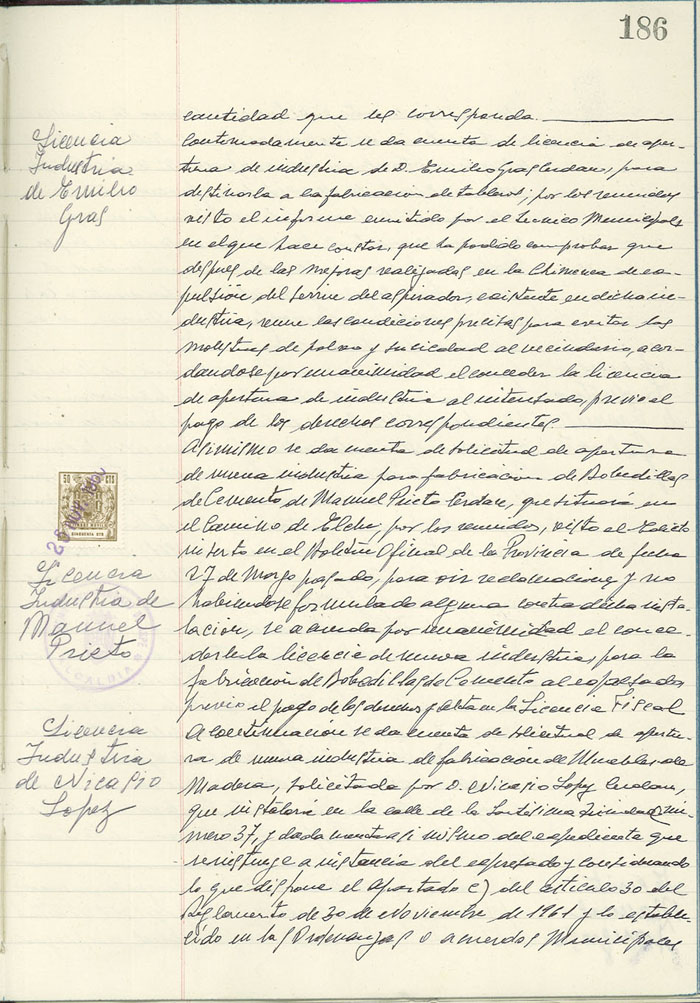 186
cantidad que les corresponda.
Licencia
Industria
de Emilio
Gras
Continuadamente se da cuenta de licencia de aper-
tura de industria de D. Emilio Gras Cerdan, para
destinarla a la fabricacion de tableros; por los reunidos
visto el informe emitido por el Tecnico Municipal
en el que hace constar, que ha podido comprobar que
despues de las mejoras realizadas en la Chimenea de ex-
pulsión del serrin del aspirador, existente en dicha in-
dustria, reune las condiciones precisas para evitar las
molestias de polvo y suciedad al vecindario, acor-
dandose por unanimidad el conceder la licencia
de apertura de industria al interesado, previo el
pago de los derechos correspondientes.
50 CTS
Licencia
Industria de
Manuel
Prieto
ALCALDIA
Asimismo se da cuenta de solicitud de apertura
de nueva industria para fabricacion de Bobedillas
de Cemento de Manuel Prieto Cerdan, que situará en
el Camino de Elche, por los reunidos, visto el Edicto
inserto en el Boletin Oficial de la Provincia de fecha
27 de Marzo pasado, para oir reclamaciones y no
habiendose formulado alguna contra dicha insta-
lación, se acuerda por unanimidad el conce-
der la licencia de nueva industria, para la
fabricación de Bobedillas de Cemento al expresado
previo el pago de los y la Licencia Fiscal
Licencia
Industria
de Nicasio
Lopez
A continuación se da cuenta de solicitud de apertu-
ra de nueva industria de fabricación de Muebles de
Madera, solicitada por D. Nicasio Lopez Cerdan,
que instalará en la calle de la Santisima Trinidad nú-
mero 37, y dada cuenta asi mismo del expediente que
se instruye a instancia del expresado y considerando
lo que dispone el apartado c) del articulo 30 del
Reglamento de 30 de Noviembre de 1961 y lo estable-
cido en las Ordenanzas o acuerdos Municipales